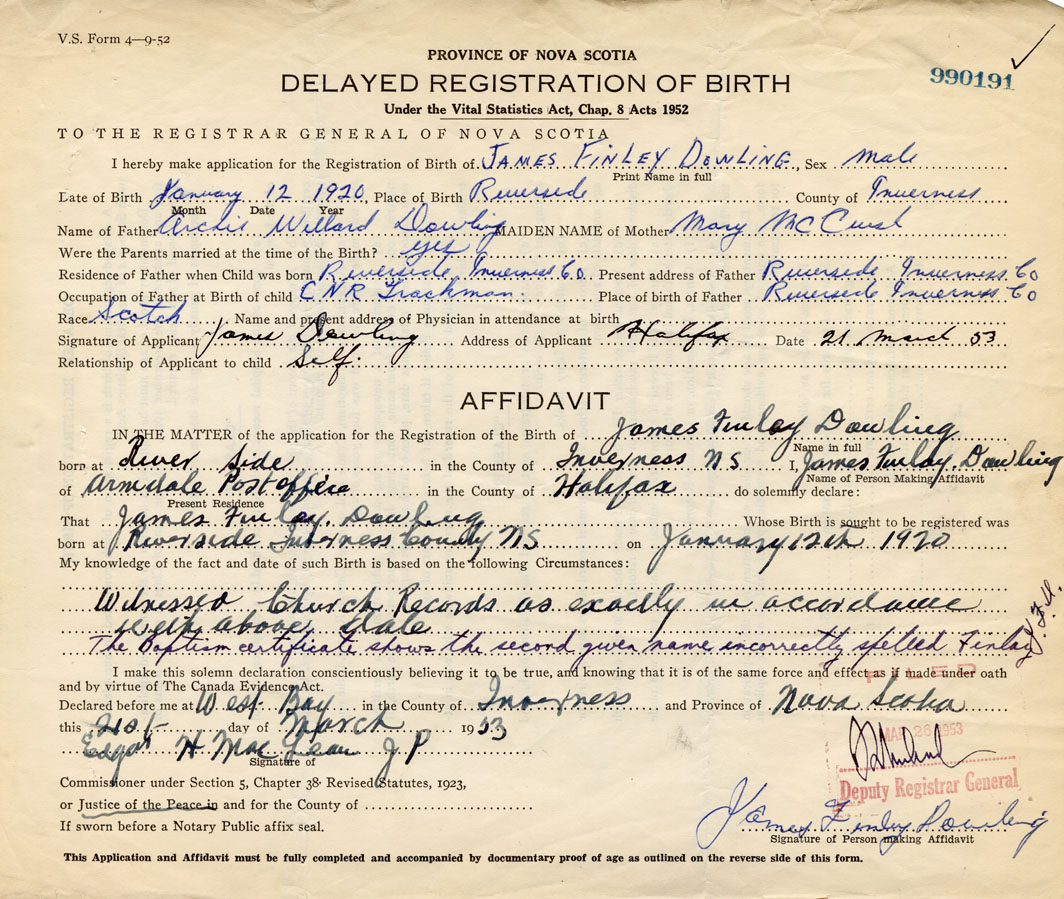 V.S. Form 4—9-52
PROVINCE OF NOVA SCOTIA
990191
DELAYED REGISTRATION OF BIRTH
Under the Vital Statistics Act, Chap. 8 Acts 1952
TO THE REGISTRAR GENERAL OF NOVA SCOTIA
I hereby make application for the Registration of Birth of JAMES FINLEY DOWLING, Sex male
Print Name in full
Date of Birth January 12 1920, Place of Birth Riverside County of Inverness
Month Date Year
Name of Father Archie Willard Dowling MAIDEN NAME of Mother Mary
Were the Parents married at the time of the Birth? yes
Residence of Father when Child was born Riverside, Inverness Co. Present address of Father Riverside Inverness Co
Occupation of Father at Birth of child CNR Trackman. Place of birth of Father Riverside Inverness Co
Race Scotch Name and present address of Physician in attendance at birth
Signature of Applicant James Dowling Address of Applicant Halifax Date 21 March 53
Relationship of Applicant to child Self.
AFFIDAVIT
IN THE MATTER of the application for the Registration of the Birth of James Finlay Dowling
Name in full
born at River Side in the County of Inverness NS I, James Finlay. Dowling
Name of Person Making Affidavit
of Armdale Post office in the County of Halifax do solemnly declare:
Present Residence
That James Finlay. Dowling Whose Birth is sought to be registered was
born at Riverside Inverness County NS on January 12th 1920
My knowledge of the fact and date of such Birth is based on the following Circumstances:
Witnessed Church Records as exactly in accordance
with above date
The Baptism certificate shows the second given name incorrectly spelled Finlay
J. F. D.
I make this solemn declaration conscientiously believing it to be true, and knowing that it is of the same force and effect as if made under oath
and by virtue of The Canada Evidence Act.
FILED
Declared before me at West Bay in the County of Inverness and Province of Nova Scotia
this 21st day of March 1953
MAR 26 1953
Edgar H Mac Lean J P
Signature of
Deputy Registrar General
Commissioner under Section 5, Chapter 38 Revised Statutes, 1923,
or Justice of the Peace in and for the County of
James Finley Dowling
Signature of Person making Affidavit
If sworn before a Notary Public affix seal.
This Application and Affidavit must be fully completed and accompanied by documentary proof of age as outlined on the reverse side of this form.